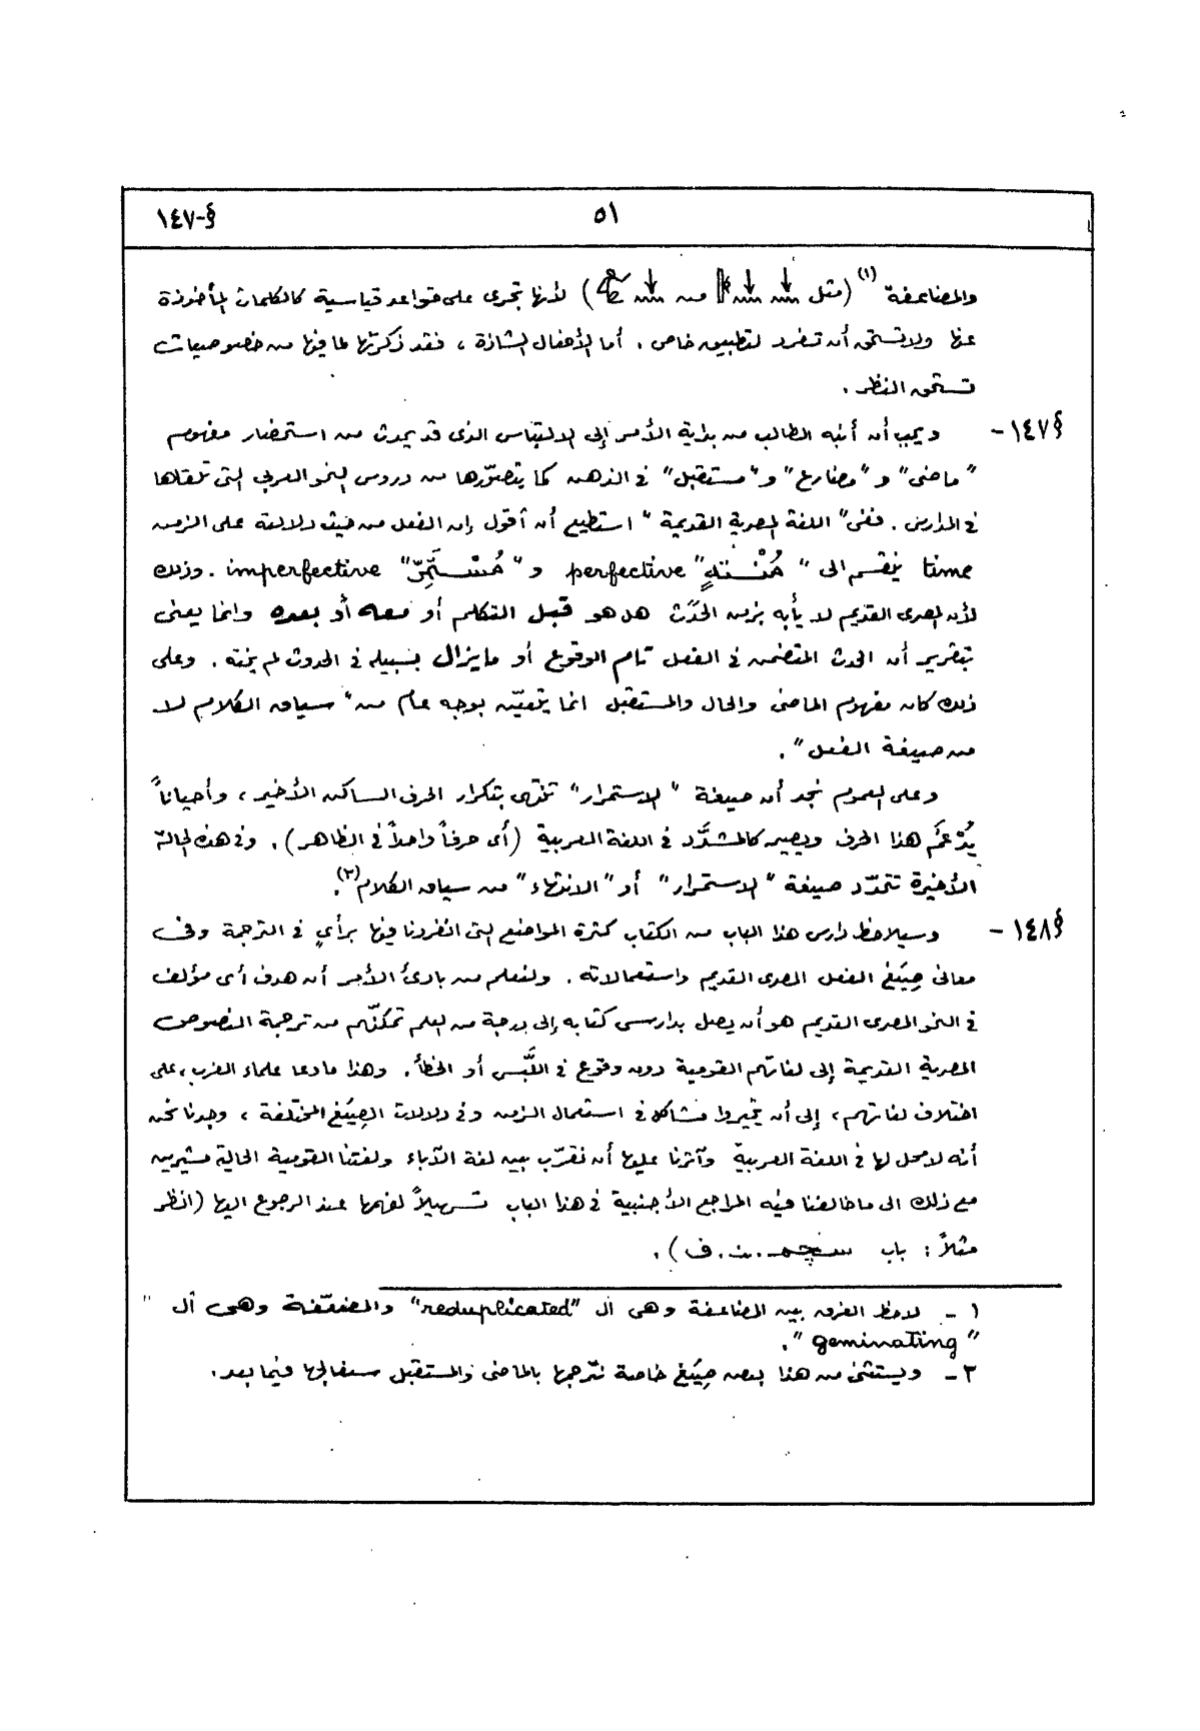 §-١٤٧ ٥١
والمضاعفة (١) (مثل من) لأنها تجرى على قواعد قياسية كالكلمات المأخوذة
عنها ولا تستحق أن تفرد لتطبيق خاص. أما الأفعال الشاذة ، فقد ذكرتها لما فيها من خصوصيات
تستحق النظر .
§١٤٧- ويجب أن أنبه الطالب من بداية الأمر إلى الالتباس الذى قد يحدث من استحضار مفهوم
"ماضى" و "مضارع" و"مستقبل" فى الذهن كما يتصوّرها من دروس النحو العربى التى تلقاها
فى المدارس . ففى "اللغة المصرية القديمة" استطيع أن أقول إن الفعل من حيث دلالته على الزمن
time ينقسم الى "مُنْتهٍ" perfective و "مُسْتَمِّرّ" imperfective . وذلك
لأن المصرى القديم لا يأبه بزمن الحَدَث هل هو قبل التكلم أو معه أو بعده وانما يعنى
بتقرير أن الحدث المتضمن فى الفعل تام الوقوع أو مايزال بسبيله فى الحدوث لم ينته . وعلى
ذلك كان مفهوم الماضى والحال والمستقبل انما يتعيّن بوجه عام من "سياق الكلام لا
من صيغة الفعل" .
وعلى العموم نجد أن صيغة "الاستمرار" تختص بتكرار الحرف الساكن الأخير ، وأحياناً
يُدْغَمُ هذا الحرف ويصير كالمشدَّد فى اللغة العربية (أى حرفاً واحداً فى الظاهر) . وفى هذه الحالة
الأخيرة تتحدّد صيغة "الاستمرار" أو "الانتهاء" من سياق الكلام(٢).
§١٤٨- وسيلاحظ دارس هذا الباب من الكتاب كثرة المواضع التى انفردنا فيها برأىٍ فى الترجمة وفى
معانى صِيَغ الفعل المصرى القديم واستعمالاته . ولنعلم من بادئ الأمر أن هدف أى مؤلف
فى النحو المصرى القديم هو أن يصل بدارسى كتابه إلى درجة من العلم تمكنّهم من ترجمة النصوص
المصرية القديمة إلى لغاتهم القومية دون وقوع فى اللَّبس أو الخطأ . وهذا مادعا علماء الغرب ، على
اختلاف لغاتهم ، إلى أن يثيروا مشاكل فى استعمال الزمن وفى دلالات الصِيَغ المختلفة ، وجدنا نحن
أنه لا محل لها فى اللغة العربية وآثرنا عليها أن نقرّب بين لغة الآباء ولغتنا القومية الحالية مشيرين
مع ذلك الى ماخالفنا فيه المراجع الأجنبية فى هذا الباب تسهيلاً لفهمها عند الرجوع اليها (انظر
مثلاً : باب سچم.ن.ف) .
١ - لاحظ الفرق بين المضاعفة وهى ال "reduplicated" والمضعّفة وهى ال "
"geminating" .
٢ - ويستثنى من هذا بعض صِيَغ خاصة نترجمها بالماضى والمستقبل سنعالجها فيما بعد .